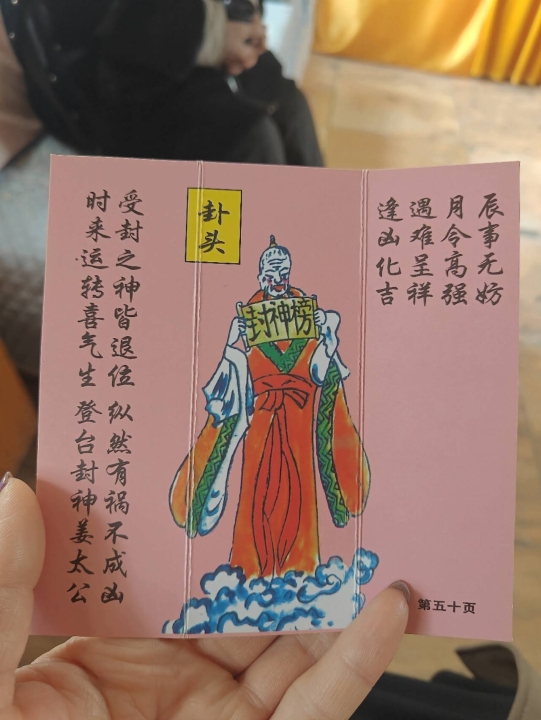 卦头
封神榜
时来运转喜气生 登台封神姜太公
受封之神皆退位 纵然有祸不成凶
逢凶化吉
遇难呈祥
月令高强
辰事无妨
第五十页